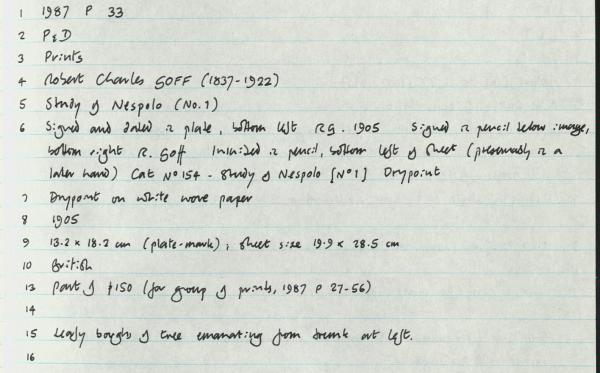 1 1987 P 33
2 P&D
3 Prints
4 Robert Charles GOFF (1837-1922)
5 Study of Nespolo (No.1)
6 Signed and dated in plate, bottom left RG. 1905 Signed in pencil below image,
bottom right R. Goff Initialed in pencil, bottom left of sheet (presumably in a
later hand) Cat Nº 154 - Study of Nespolo [Nº1] Drypoint
7 Drypoint on white wove paper
8 1905
9 13.2 x 18.2 cm (plate-mark); sheet size 19.9 x 28.5 cm
10 British
13 Part of £150 (for group of prints, 1987 P 27-56)
14
15 Leafy boughs of tree emanating from trunk at left.
16